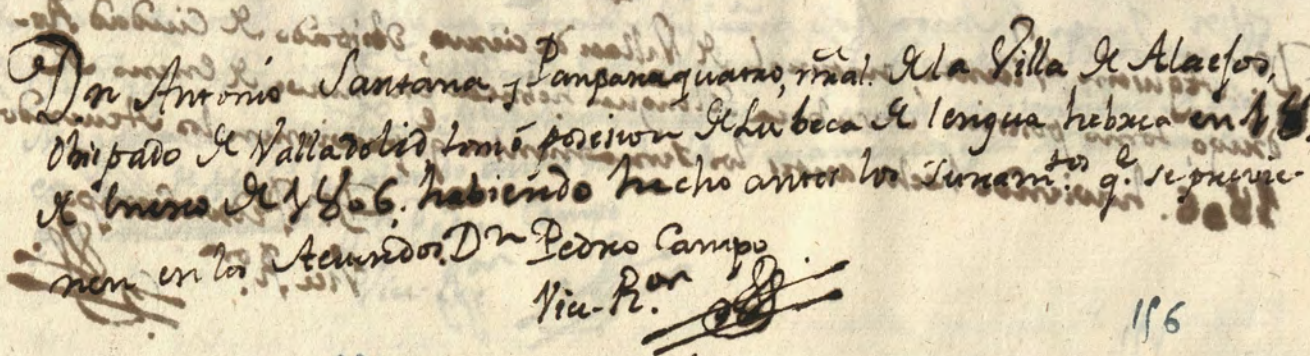 Dn Antonio Santana y Panpanaquatro, nãal. de la Villa de Alaejos,
Obispado de Valladolid tomó posesion de Lu beca de lengua hebrea en 1
de Enero de 1806. habiendo hecho antes los Juram.tos q.e se previe-
nen en los Acuerdos. Dn Pedro Campo
Vice-R.or
156